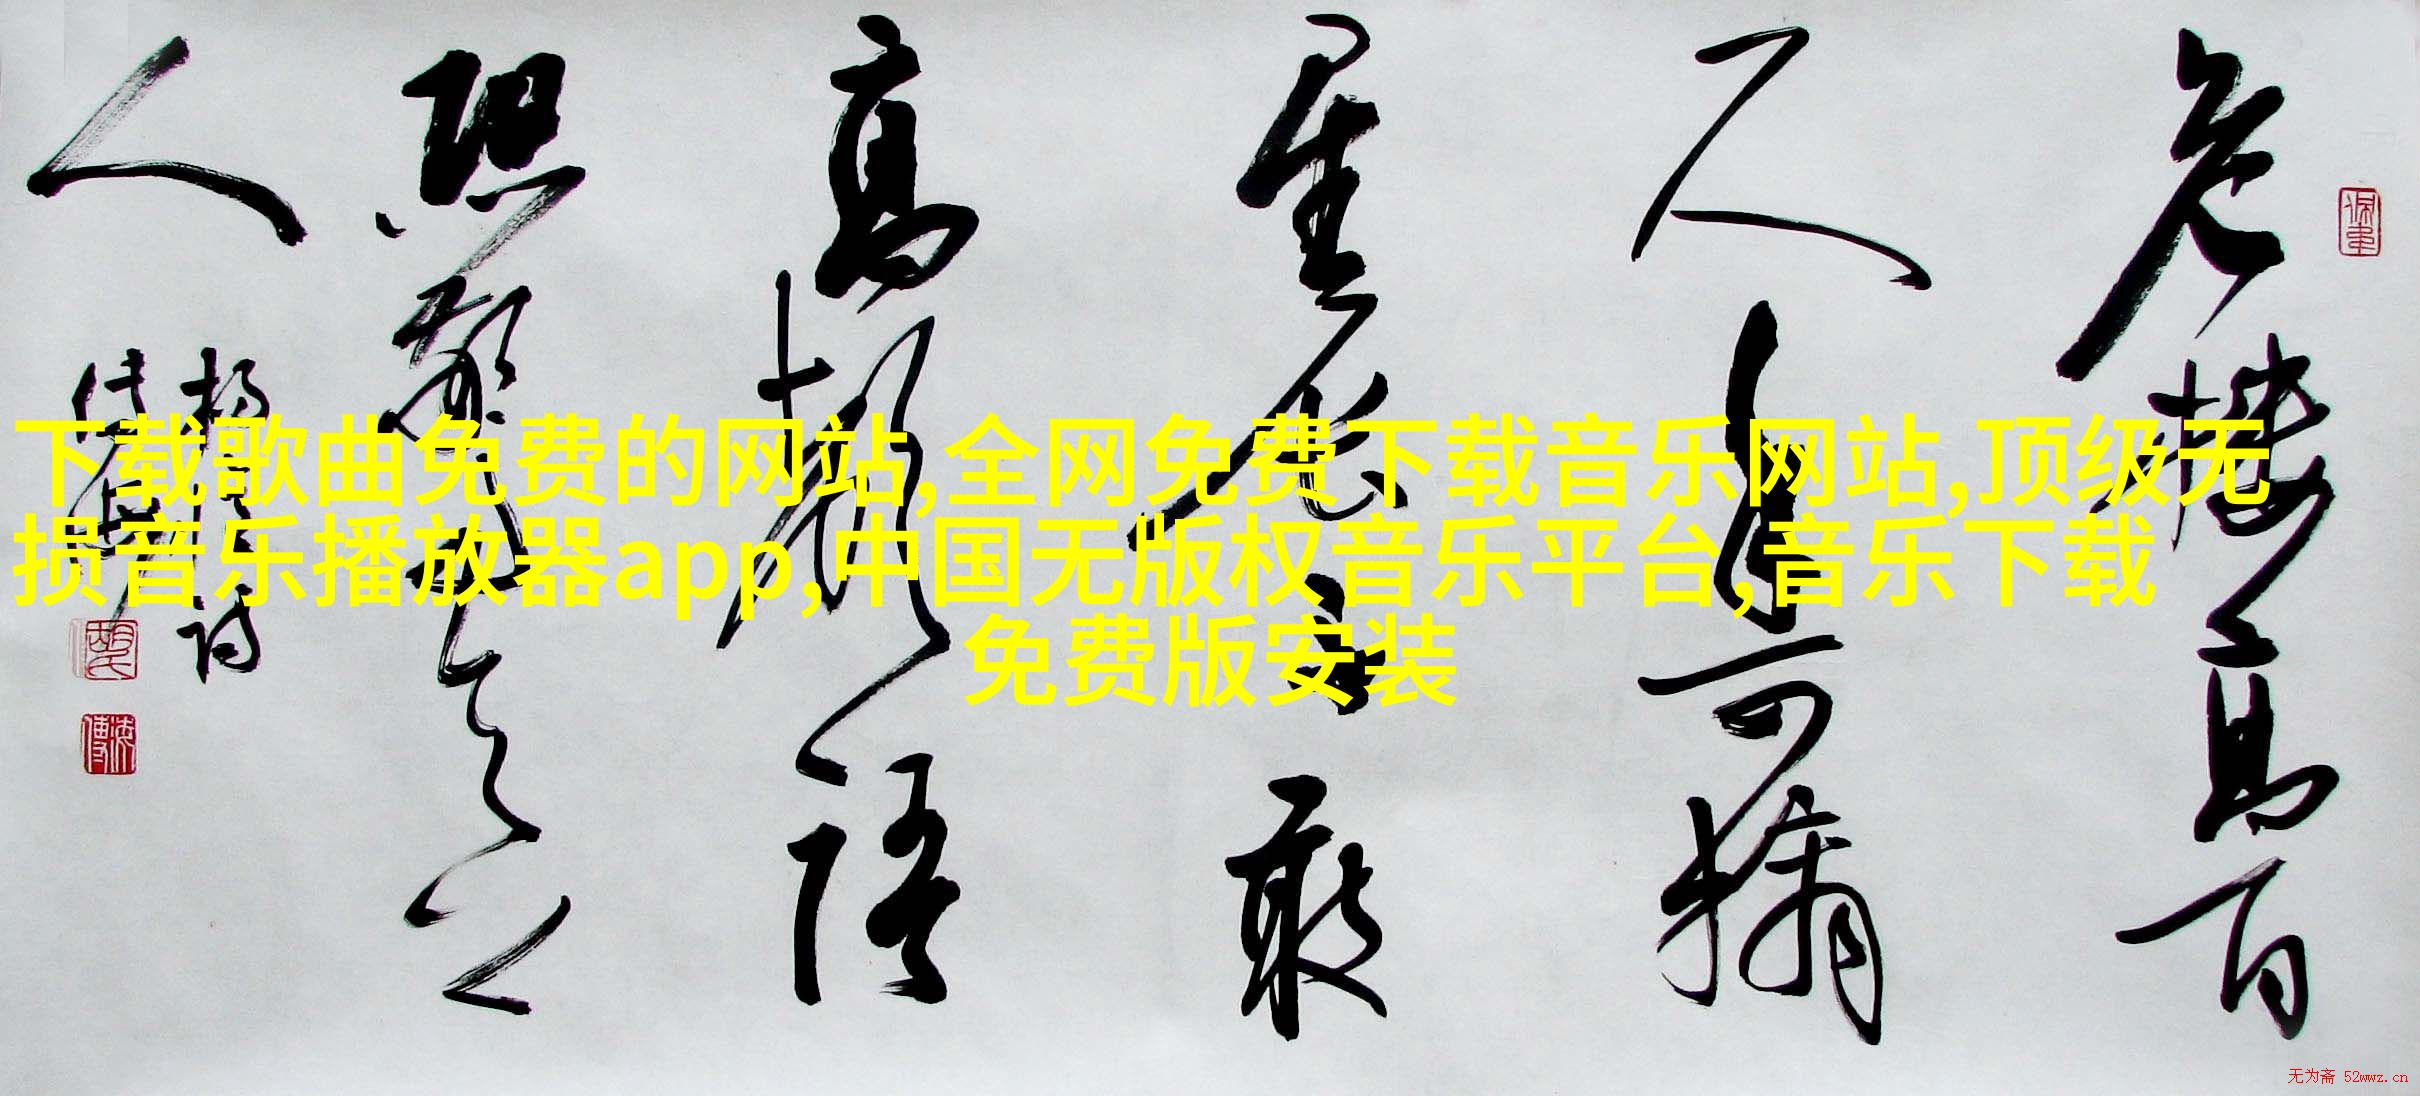 危楼高百
尺手可摘
星辰不敢
高声语
恐惊天上
人
下载歌曲免费的网站,全网免费下载音乐网站,顶级无
损音乐播放器app,中国无版权音乐平台,音乐下载
免费版安装
无为斋 52wwz.cn